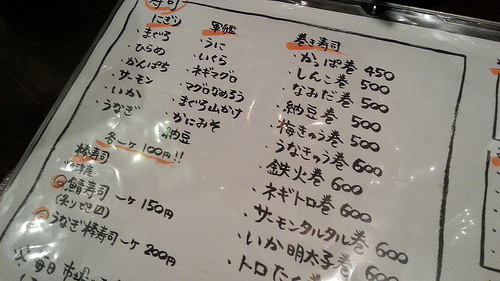 寿司
にぎり
・まぐろ
・ひらめ
・かんぱち
・サーモン
・いか
・うなぎ
軍艦
・うに
・いくら
・ネギマグロ
・マグロなめろう
・まぐろ山かけ
・かにみそ
・納豆
各一ケ 100円!!
巻き寿司
・かっぱ巻 450
・しんこ巻 500
・なみだ巻 500
・納豆巻 500
・梅きゅう巻 500
・うなきゅう巻 600
・鉄火巻 600
・ネギトロ巻 600
・サーモンタルタル巻 600
・いか明太子巻 600
・トロた
棒寿司
鯖寿司 一ケ 150円
(炙りでも可)
うなぎ棒寿司 一ケ 200円
毎日